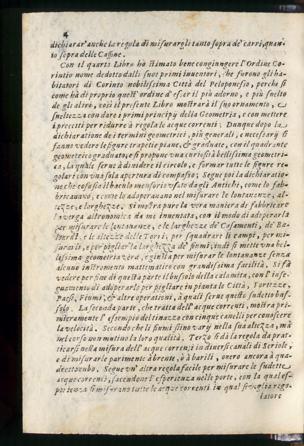 dichiarar' anche la regola di misurar gli tanto sopra de' carri, quanto
sopra delle Cassine.
Con il quarto Libro hò stimato bene congiungere l'Ordine Corintio
nome dedotto dalli suoi primi inuentori, che furono gli habitatori
di Corinto nobilissima Città del Peloponeso, perche si
come hà di proprio quest' ordine d' esser il più adorno, e più suelto
de gli altri, così il presente Libro mostrarà il suo ornamento, e
sueltezza con dare i primi principij della Geometria, e con mettere
i precetti per ridurre à regola le acque correnti: Dunque dopo la
dichiaratione dei termini geometrici, più generali, e necessarij si
fanno vedere le figure trapetie piane, & graduate, con il quadrante
geometrico graduato, e si propone vna curiosa è bellissima geometrica,
la quale serue à diuidere il circolo, e formar tutte le figure regolari
con vna sola apertura di compasso; Segue poi la dichiaratione
che cosa sia il baculo mensorio vsato dagli Antichi, come lo fabbricauano,
e come lo adoperauano nel misurare le lontananze, altezze,
e larghezze. Si mostra pure la vera maniera di fabbricare
la verga astronomica da me inuentata, con il modo di adoperarla
per misurare le lontananze, e le larghezze de' Casamenti, de'
e le altezze delle Torri, per squadrare li campi, per misurarli,
e per pigliar' la larghezza de' fiumi, indi si mette vna bellissima
geometria per misurar le lontananze senza
alcuno instromento mattematico con grandissima facilità. Si fà
vedere per fine di questa parte il bussolo della calamita, con l' insegnamento
di adoperarlo per pigliare in pianta le Città, Fortezze,
Passi, Fiumi, & altre operationi, à quali serue questo sudetto bussolo.
La seconda parte, che tratta dell' acque correnti, mostra primieramente
l' esempio del tiuazzo con cinque cannelli per conoscere
la velocità. Secondo che li fiumi si nella sua altezza, mà
nel corso non mutino la loro qualità. Terzo si dà la regola da praticarsi
nella misura dell' acque correnti in diuersi canali di Seriole,
e di misurarle parimente à brente, ò à barili, ouero ancora à quadrettoni
cubo. Segue vn' altra regola facile per misurare le sudette
acque correnti, facendone l' esperienza nelle porte, con la qual e
poi tutte le acque correnti in qual si voglia regolatore